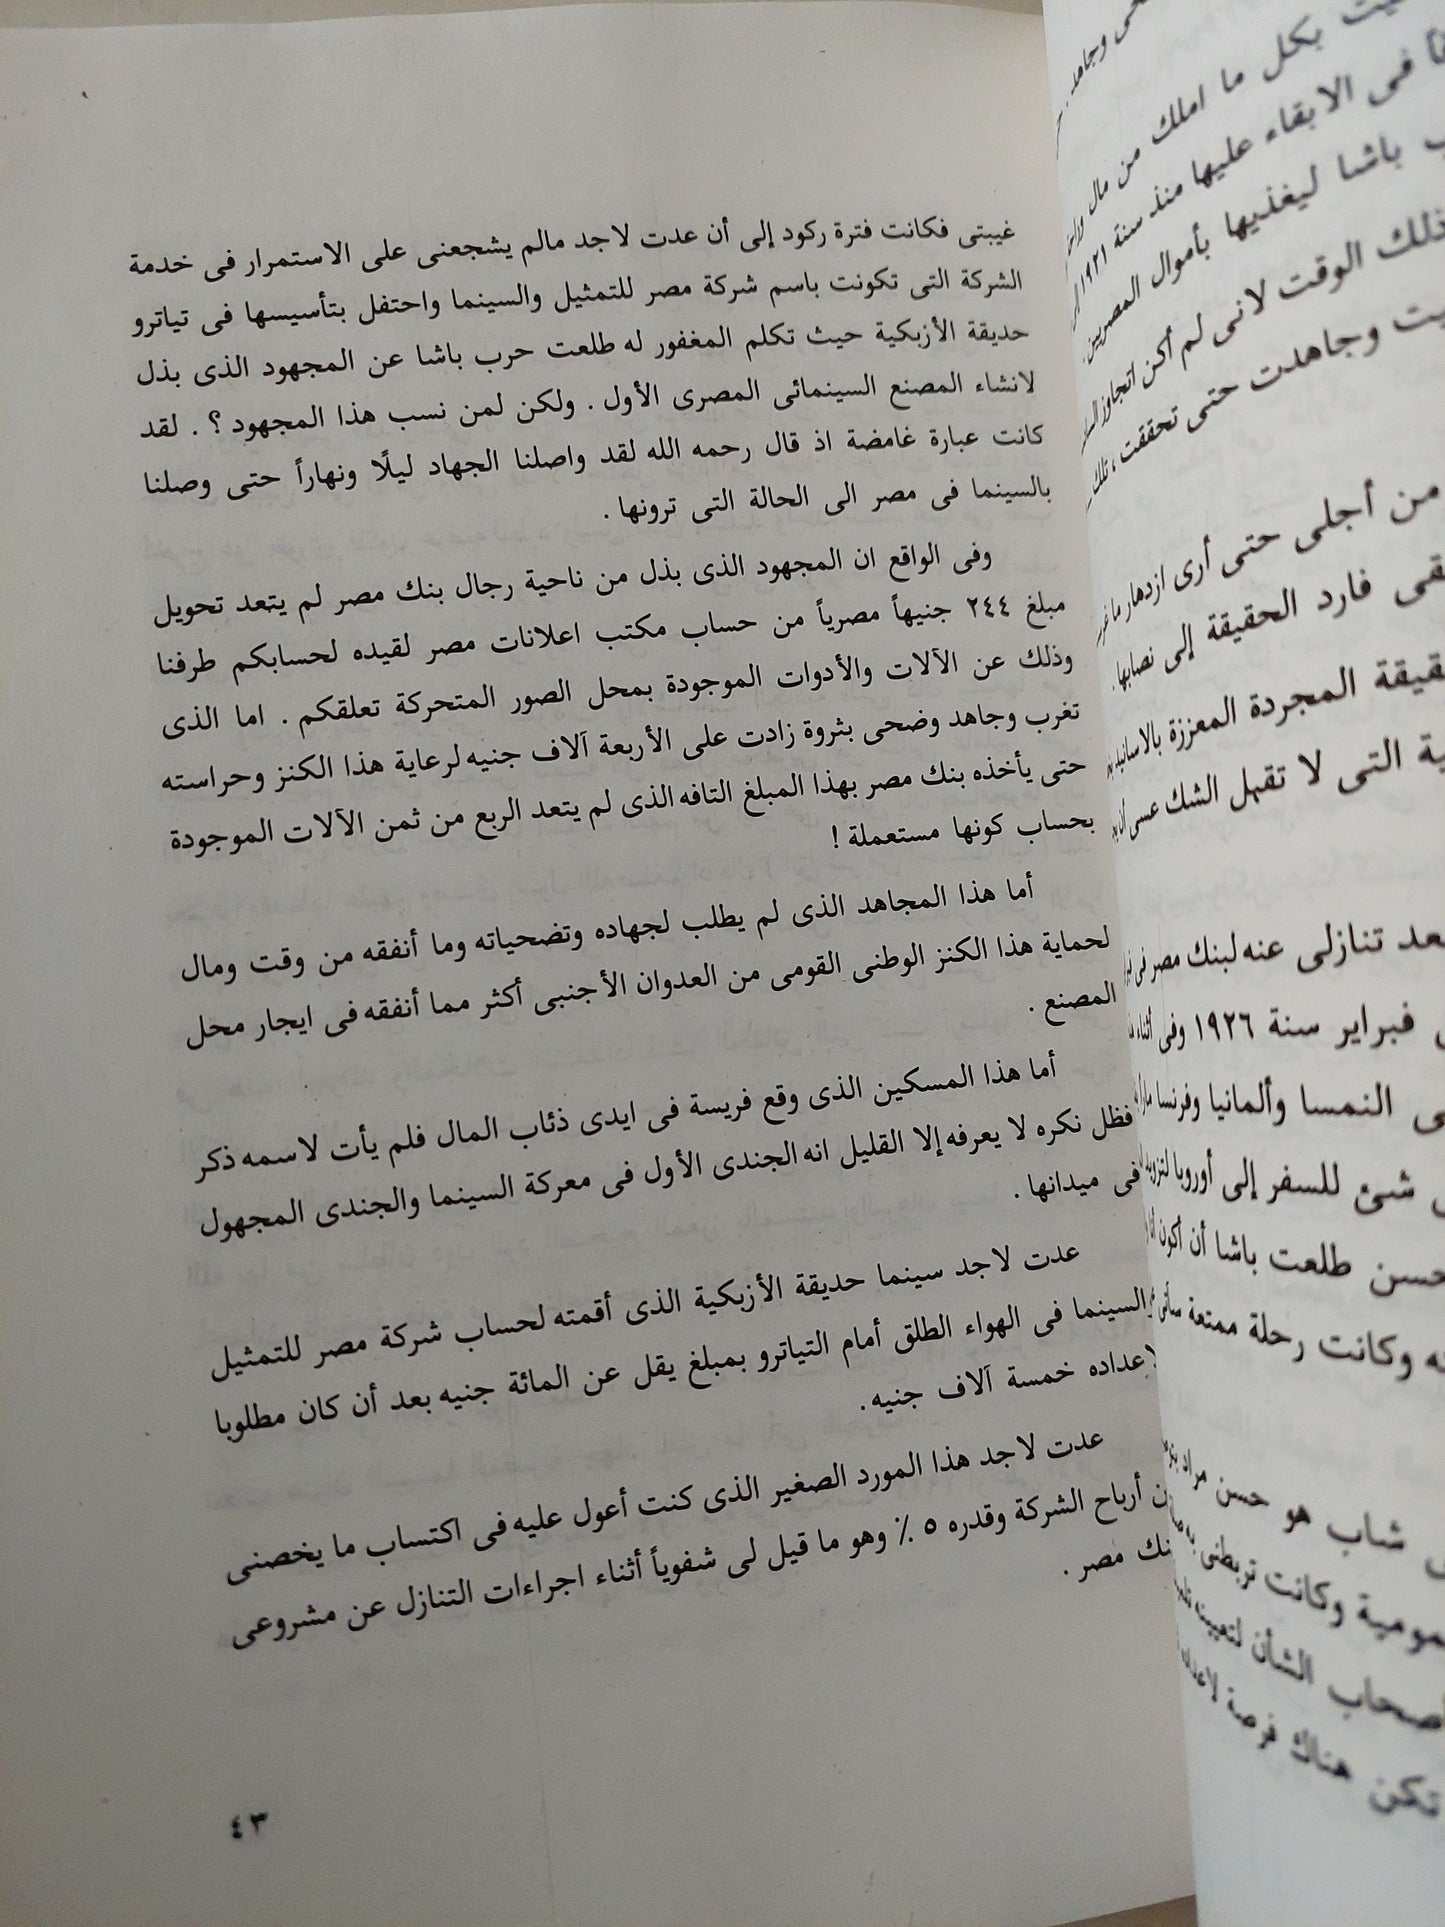 غيبتى فكانت فترة ركود إلى أن عدت لاجد مالم يشجعنى على الاستمرار فى خدمة
الشركة التى تكونت باسم شركة مصر للتمثيل والسينما واحتفل بتأسيسها فى تياترو
حديقة الأزبكية حيث تكلم المغفور له طلعت حرب باشا عن المجهود الذى بذل
لانشاء المصنع السينمائى المصرى الأول . ولكن لمن نسب هذا المجهود ؟ . لقد
كانت عبارة غامضة اذ قال رحمه الله لقد واصلنا الجهاد ليلًا ونهاراً حتى وصلنا
بالسينما فى مصر الى الحالة التى ترونها .
وفى الواقع ان المجهود الذى بذل من ناحية رجال بنك مصر لم يتعد تحويل
مبلغ ٢٤٤ جنيهاً مصرياً من حساب مكتب اعلانات مصر لقيده لحسابكم طرفنا
وذلك عن الآلات والأدوات الموجودة بمحل الصور المتحركة تعلقكم . اما الذى
تغرب وجاهد وضحى بثروة زادت على الأربعة آلاف جنيه لرعاية هذا الكنز وحراسته
حتى يأخذه بنك مصر بهذا المبلغ التافه الذى لم يتعد الربع من ثمن الآلات الموجودة
بحساب كونها مستعملة !
أما هذا المجاهد الذى لم يطلب لجهاده وتضحياته وما أنفقه من وقت ومال
لحماية هذا الكنز الوطنى القومى من العدوان الأجنبى أكثر مما أنفقه فى ايجار محل
المصنع .
أما هذا المسكين الذى وقع فريسة فى ايدى ذئاب المال فلم يأت لاسمه ذكر
فظل نكره لا يعرفه إلا القليل انه الجندى الأول فى معركة السينما والجندى المجهول
فى ميدانها .
عدت لاجد سينما حديقة الأزبكية الذى أقمته لحساب شركة مصر للتمثيل
والسينما فى الهواء الطلق أمام التياترو بمبلغ يقل عن المائة جنيه بعد أن كان مطلوبا
لإعداده خمسة آلاف جنيه.
عدت لاجد هذا المورد الصغير الذى كنت أعول عليه فى اكتساب ما يخصنى
أرباح الشركة وقدره ٥ ٪ وهو ما قيل لى شفوياً أثناء اجراءات التنازل عن مشروعى
مصر .
٤٣
بكل ما املك من مال
فى الابقاء عليها منذ سنة ١٩٢١
باشا ليغذيها بأموال المصريين
ذلك الوقت لانى لم أكن اتجاوز
وجاهدت حتى تحققت ، تلك
من أجلى حتى أرى ازدهار
فارد الحقيقة إلى نصابها .
المجردة المعززة
التى لا تقبل الشك عسى
تنازلى عنه لبنك مصر فى
فبراير سنة ١٩٢٦ وفى أثناء
النمسا وألمانيا وفرنسا
شئ للسفر إلى أوروبا
طلعت باشا أن أكون
وكانت رحلة ممتعة
شاب هو حسن مراد
وكانت تربطنى به
الشأن
تكن هناك فرصة